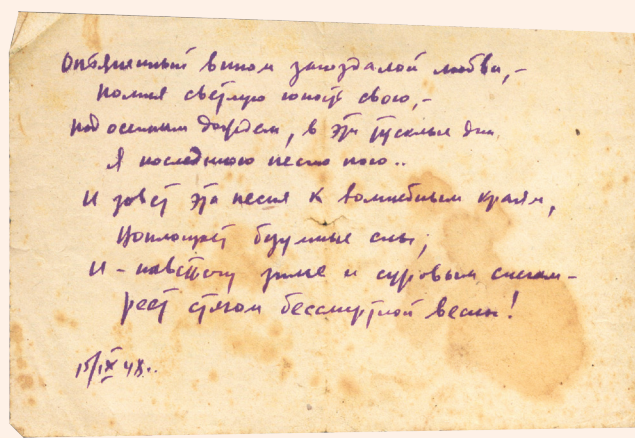 Опьяненный вином запоздалой любви, –
помня светлую юность свою, –
под осенним дождем, в эти тусклые дни
Я последнюю песню пою..
И зовет эта песня к волшебным краям,
Воплощает безумные сны;
И – навстречу зиме и суровым снегам –
реет стягом бессмертной весны!
15/IX 48..